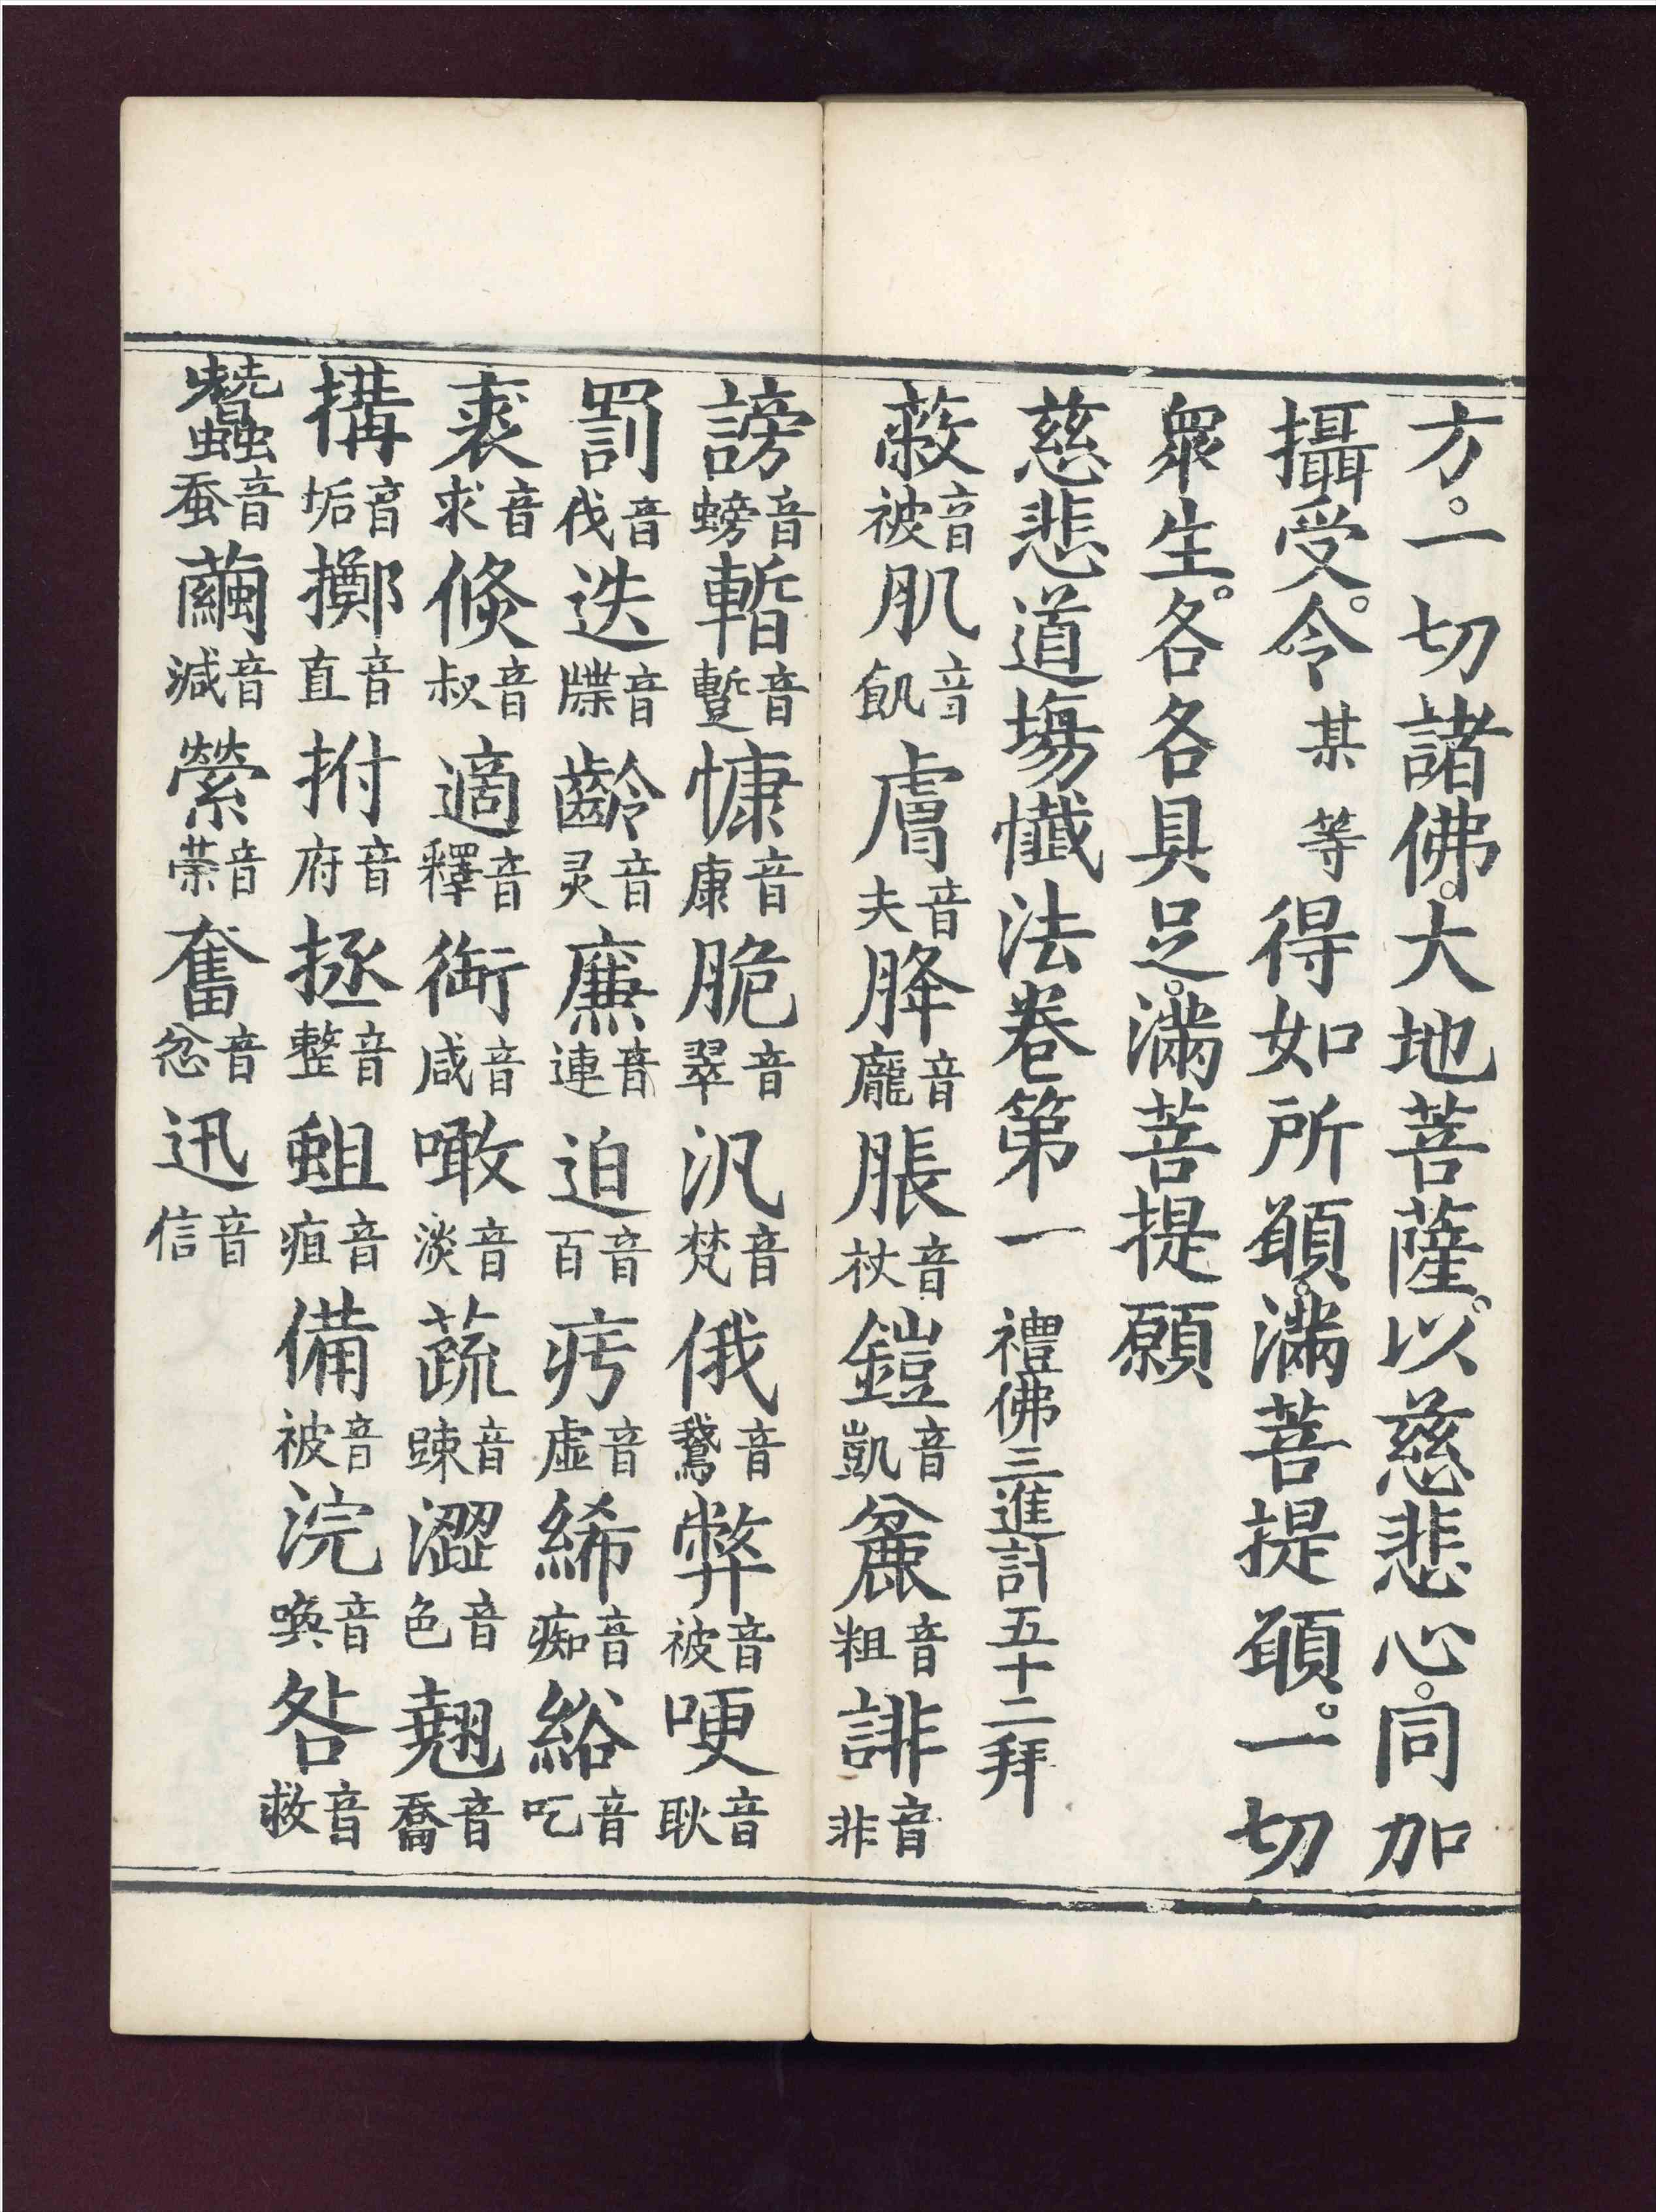 方。一切諸佛。大地菩薩。以慈悲心。同加
攝受。令某等得如所頥。滿菩提頥。一切
衆生。各各具足。滿菩提願
慈悲道塲懴法卷第一 禮佛三進計五十二拜
蔽音被肌音飢膚音夫胮音龐脹音杖鎧音凱麄音粗誹音非
謗音螃暫音蹔慷音康脆音翠汎音梵俄音鵞弊音被哽音耿
罰音伐迭音牒齡音灵廉音連迫音百疞音虚絺音痴綌音吃
裘音求倏音叔適音釋銜音咸噉音淡蔬音踈澀音色翹音喬
搆音垢擲音直拊音府拯音整蛆音疽備音被浣音喚咎音救
蠶音蚕繭音減縈音荣奮音忿迅音信